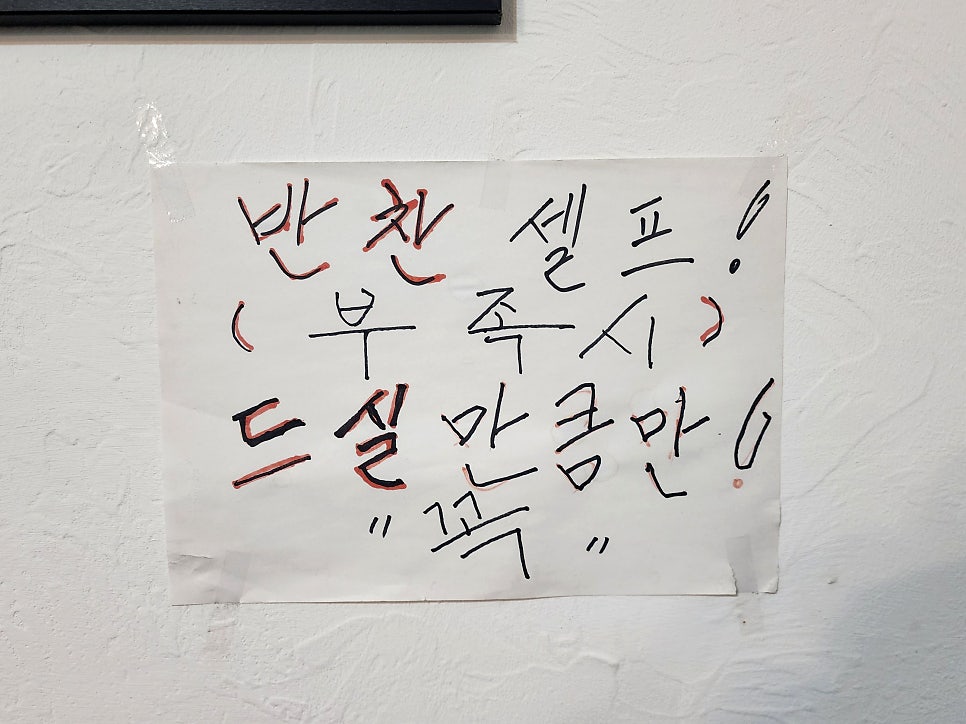 반찬 셀프!
(부족시)
드실 만큼만!
"꼭"